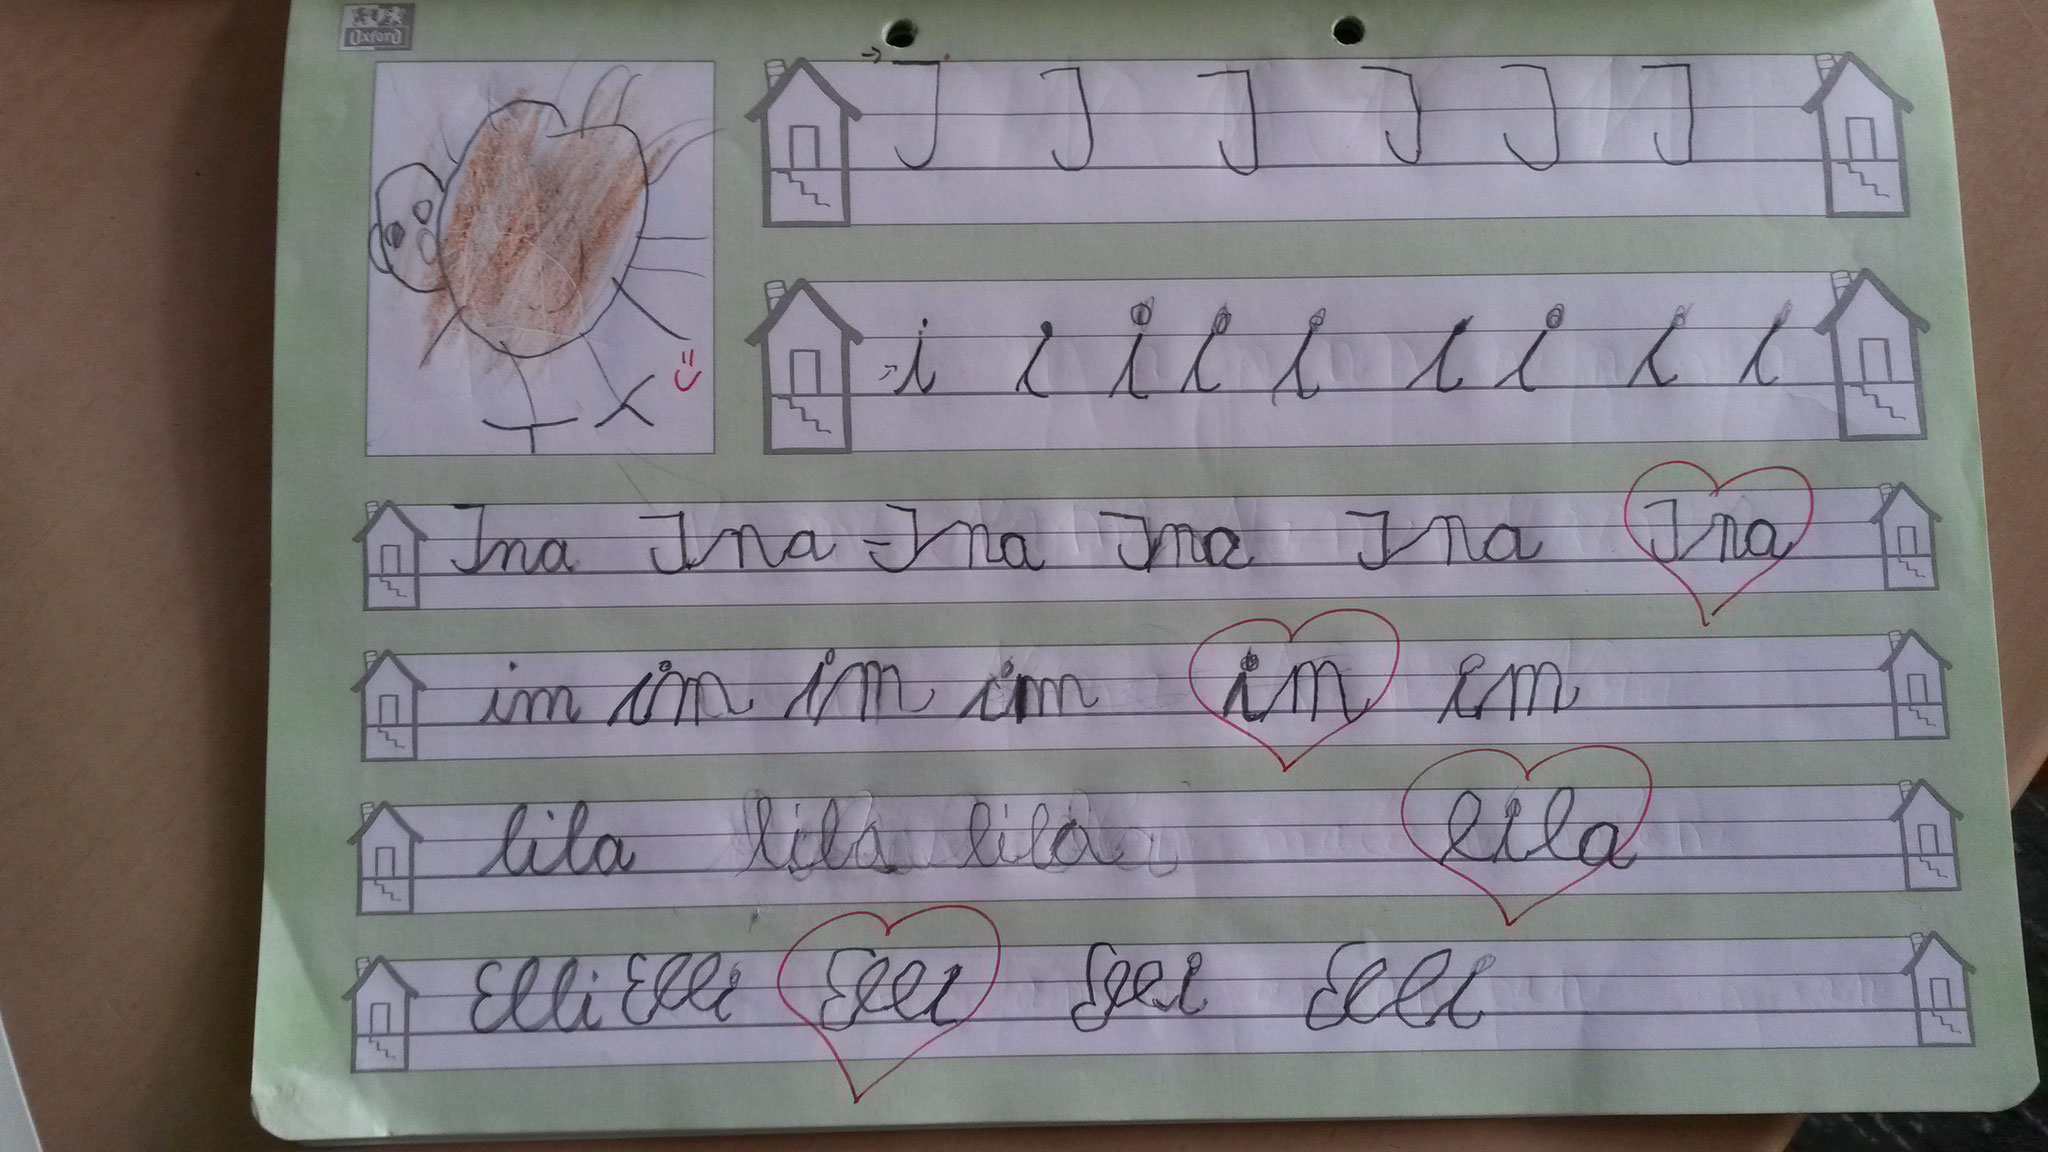 Oxford
I I I I I I
i i i i i i i i i
Ina Ina Ina Ina Ina Ina
im im im im im im
lila lila lila lila
Elli Elli Elli Elli Elli